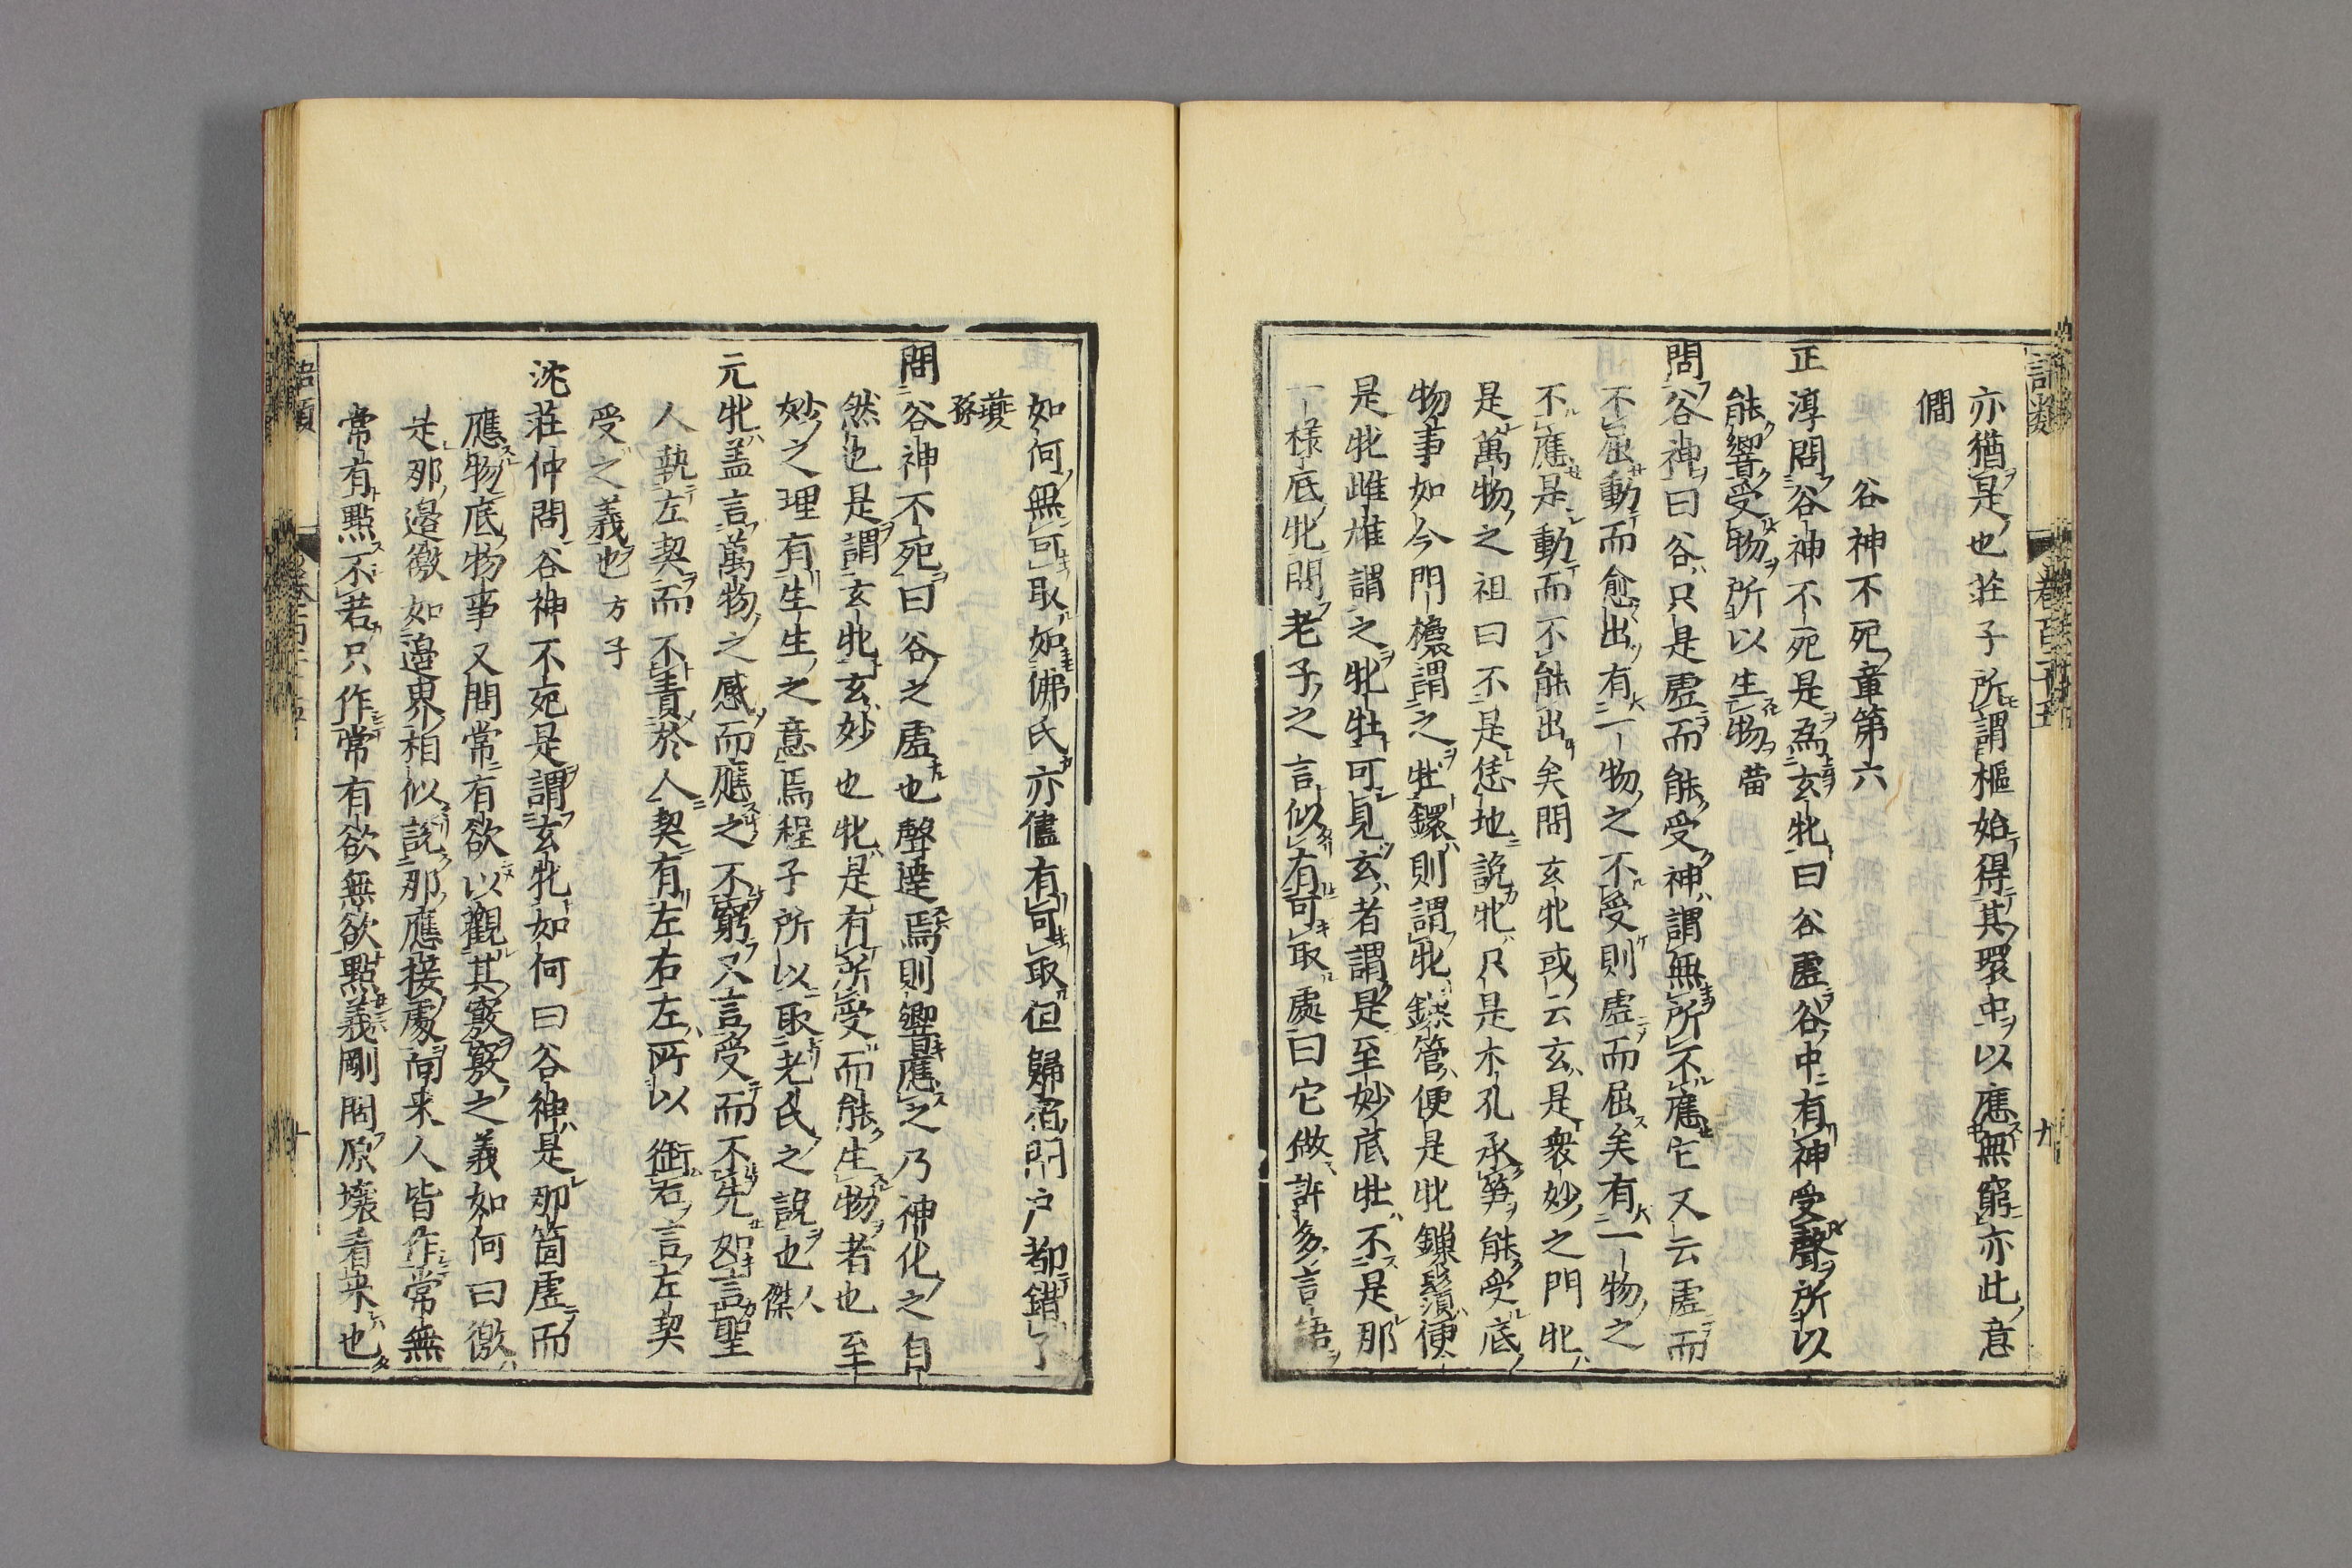 亦猶是也莊子所謂樞始得其環中以應無窮亦此意
僩
谷神不死章第六
正淳問谷神不死是爲玄牝曰谷虛谷中有神受聲所以
能響受物所以生物𤲞
問谷神曰谷只是虛而能受神謂無所不應它又云虛而
不屈動而愈出有一物之不受則虛而屈矣有一物之
不應是動而不能出矣問玄牝或云玄是衆妙之門牝
是萬物之祖曰不是恁地說牝只是木孔承筍能受底
物事如今門檐謂之牡鐶則謂牝鏁管便是牝鏁鬚便
是牝雌雄謂之牝牡可見玄者謂是至妙底牡不是那
一樣底牝問老子之言似有可取處曰它做許多言語
如何無可取如佛氏亦儘有可取但歸宿門戶都錯了
夔孫
問谷神不死曰谷之虛也聲達焉則響應之乃神化之自
然也是謂玄牝玄妙也牝是有所受而能生物者也至
妙之理有生生之意焉程子所以取老氏之說也人傑
元牝盖言萬物之感而應之不窮又言受而不先如言聖
人執左契而不責於人契有左右左所以銜右言左契
受之義也方子
沈莊仲問谷神不死是謂玄牝如何曰谷神是那箇虛而
應物底物事又問常有欲以觀其竅竅之義如何曰徼
是那邊徼如邊界相似說那應接處向来人皆作常無
常有點不若只作常有欲無欲點義剛問原壤看来也
語類
卷百二十五
九
十